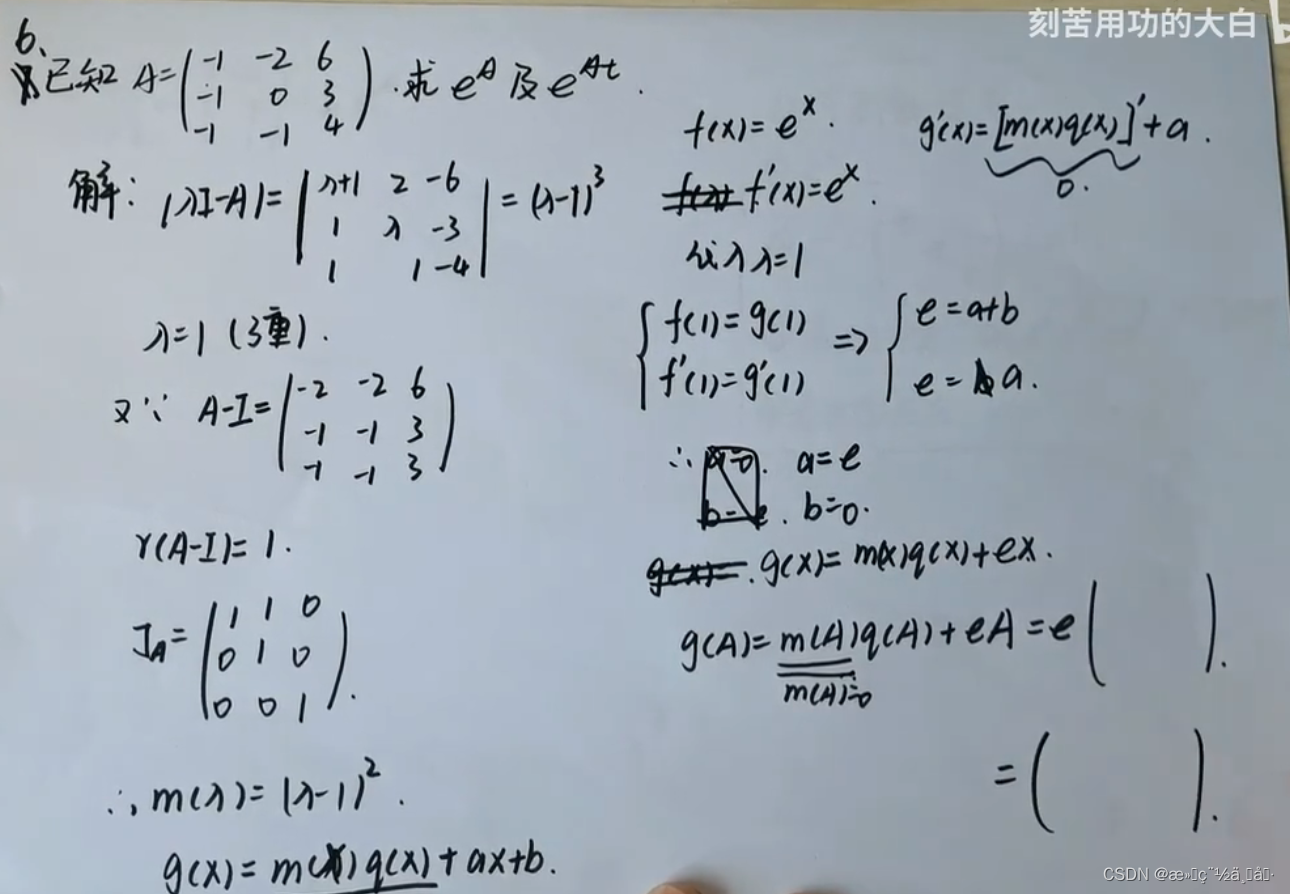 刻苦用功的大白
6、
已知 A=(-1 -2 6
-1 0 3
-1 -1 4) . 求 e^A 及 e^{At} .
解: |λI-A|= |λ+1 2 -6
1 λ -3
1 1 -4| = (λ-1)^3
λ=1 (3重).
又∵ A-I= (-2 -2 6
-1 -1 3
-1 -1 3)
r(A-I)= 1.
J_A= (1 1 0
0 1 0
0 0 1).
∴, m(λ)= (λ-1)^2 .
g(x)= m(x)q(x)+ax+b.
f(x)= e^x . g'(x)= [m(x)q(x)]'+a .
0.
f'(x)=e^x .
λ=1
{ f(1)=g(1)
f'(1)=g'(1) => { e=a+b
e= a.
∴ a=e
b=0.
g(x)= m(x)q(x)+ex .
g(A)= m(A)q(A)+eA = e( ).
m(A)=0
= ( ).